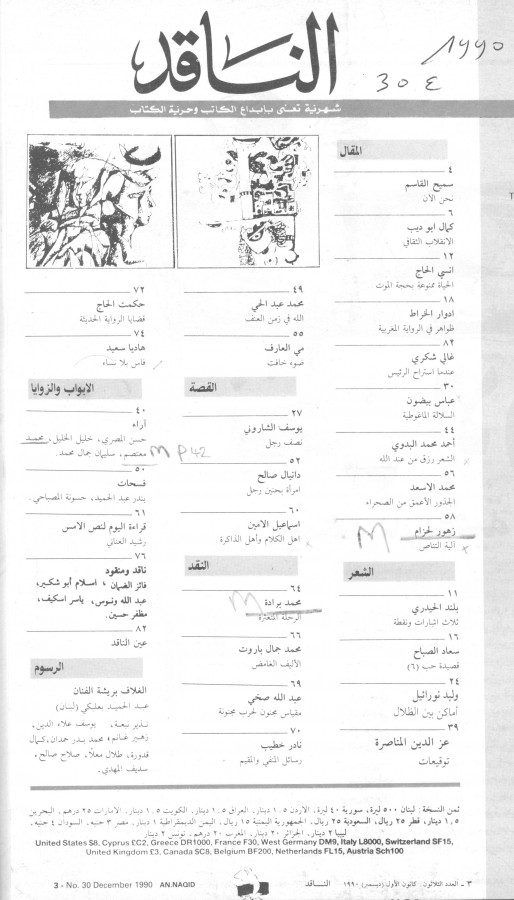 الناقد
١٩٩٠
٣٠ ع
شهرية تعنى بابداع الكاتب وحرية الكتاب
المقال
٤
سميح القاسم
نحن الآن
٦
كمال ابو ديب
الانقلاب الثقافي
١٢
انسي الحاج
الحياة ممنوعة بحجة الموت
١٨
ادوار الخراط
ظواهر في الرواية المغربية
٨٢
غالي شكري
عندما استراح الرئيس
٣٠
عباس بيضون
السلالة الماغوطية
٤٤
أحمد محمد البدوي
الشعر رزق من عند الله
٥٦
محمد الاسعد
الجذور الأعمق من الصحراء
٥٨
زهور لحزام
آلية التناص
M
الشعر
١١
بلند الحيدري
ثلاث اشارات ونقطة
١٦
سعاد الصباح
قصيدة حب (٦)
٢٤
وليد نورائيل
أماكن بين الظلال
٣٩
عز الدين المناصرة
توقيعات
٤٩
محمد عبد الحي
الله في زمن العنف
٥٥
مي العارف
ضوء خافت
القصة
٢٧
يوسف الشاروني
نصف رجل
٥٢
دانيال صالح
امرأة بحنين رجل
٦٠
اسماعيل الامين
اهل الكلام وأهل الذاكرة
النقد
٦٤
محمد برادة
الرحلة المتعثرة
M
٦٦
محمد جمال باروت
الأليف الغامض
٦٩
عبد الله صخي
مقياس مجنون لحرب مجنونة
٧٠
نادر خطيب
رسائل المنفي والمقيم
٧٢
حكمت الحاج
قضايا الرواية الحديثة
٧٤
هاديا سعيد
فاس بلا نساء
الابواب والزوايا
٤٠
آراء
حسن المصري، خليل الخليل، محمد
معتصم، سليمان جمال محمد.
M P42
٥٠
فسحات
بندر عبد الحميد، حسونة المصباحي.
٦١
قراءة اليوم لنص الامس
رشيد العناني
٧٦
ناقد ومنقود
فائز الضمان، اسلام أبو شكير،
عبد الله ونوسي، ياسر اسكيف،
مظفر حسين.
٨٢
عين الناقد
الرسوم
الغلاف بريشة الفنان
عبد الحميد بعلبكي (لبنان)
نذير نبعة، يوسف علاء الدين،
زهير غانم، محمد بدر حمدان، كمال
قدورة، طلال معلا، صلاح صالح،
سديف المهدي.
ثمن النسخة: لبنان ٥٠٠ ليرة، سورية ٤٠ ليرة، الاردن ١.٥ دينار، العراق ١.٥ دينار، الكويت ١.٥ دينار، الامارات ٢٥ درهم، البحرين
١.٥ دينار، قطر ٢٥ ريال، السعودية ٢٥ ريال، الجمهورية اليمنية ١٥ ريال، اليمن الديمقراطية ١ دينار، مصر ٣ جنيه، السودان ٤ جنيه،
ليبيا ٢ دينار، الجزائر ٢٠ دينار، المغرب ٢٠ درهم، تونس ٢ دينار
United States $8, Cyprus £C2, Greece DR1000, France F30, West Germany DM9, Italy L8000, Switzerland SF15,
United Kingdom £3, Canada $C8, Belgium BF200, Netherlands FL15, Austria Sch100
٣ - العدد الثلاثون كانون الأول (ديسمبر) ١٩٩٠ الناقد
3 - No. 30 December 1990 AN.NAQID